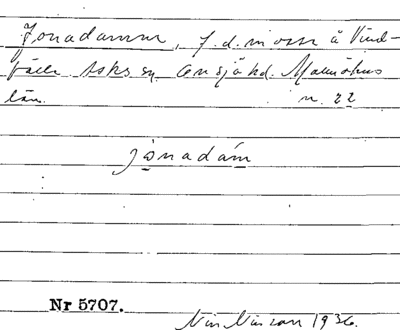 Jonadamm, f.d. mosse å Vind-
fälle Asks sn. Onsjö hd. Malmöhus
län. n. 22
jonadám
Nr 5707.
1936.